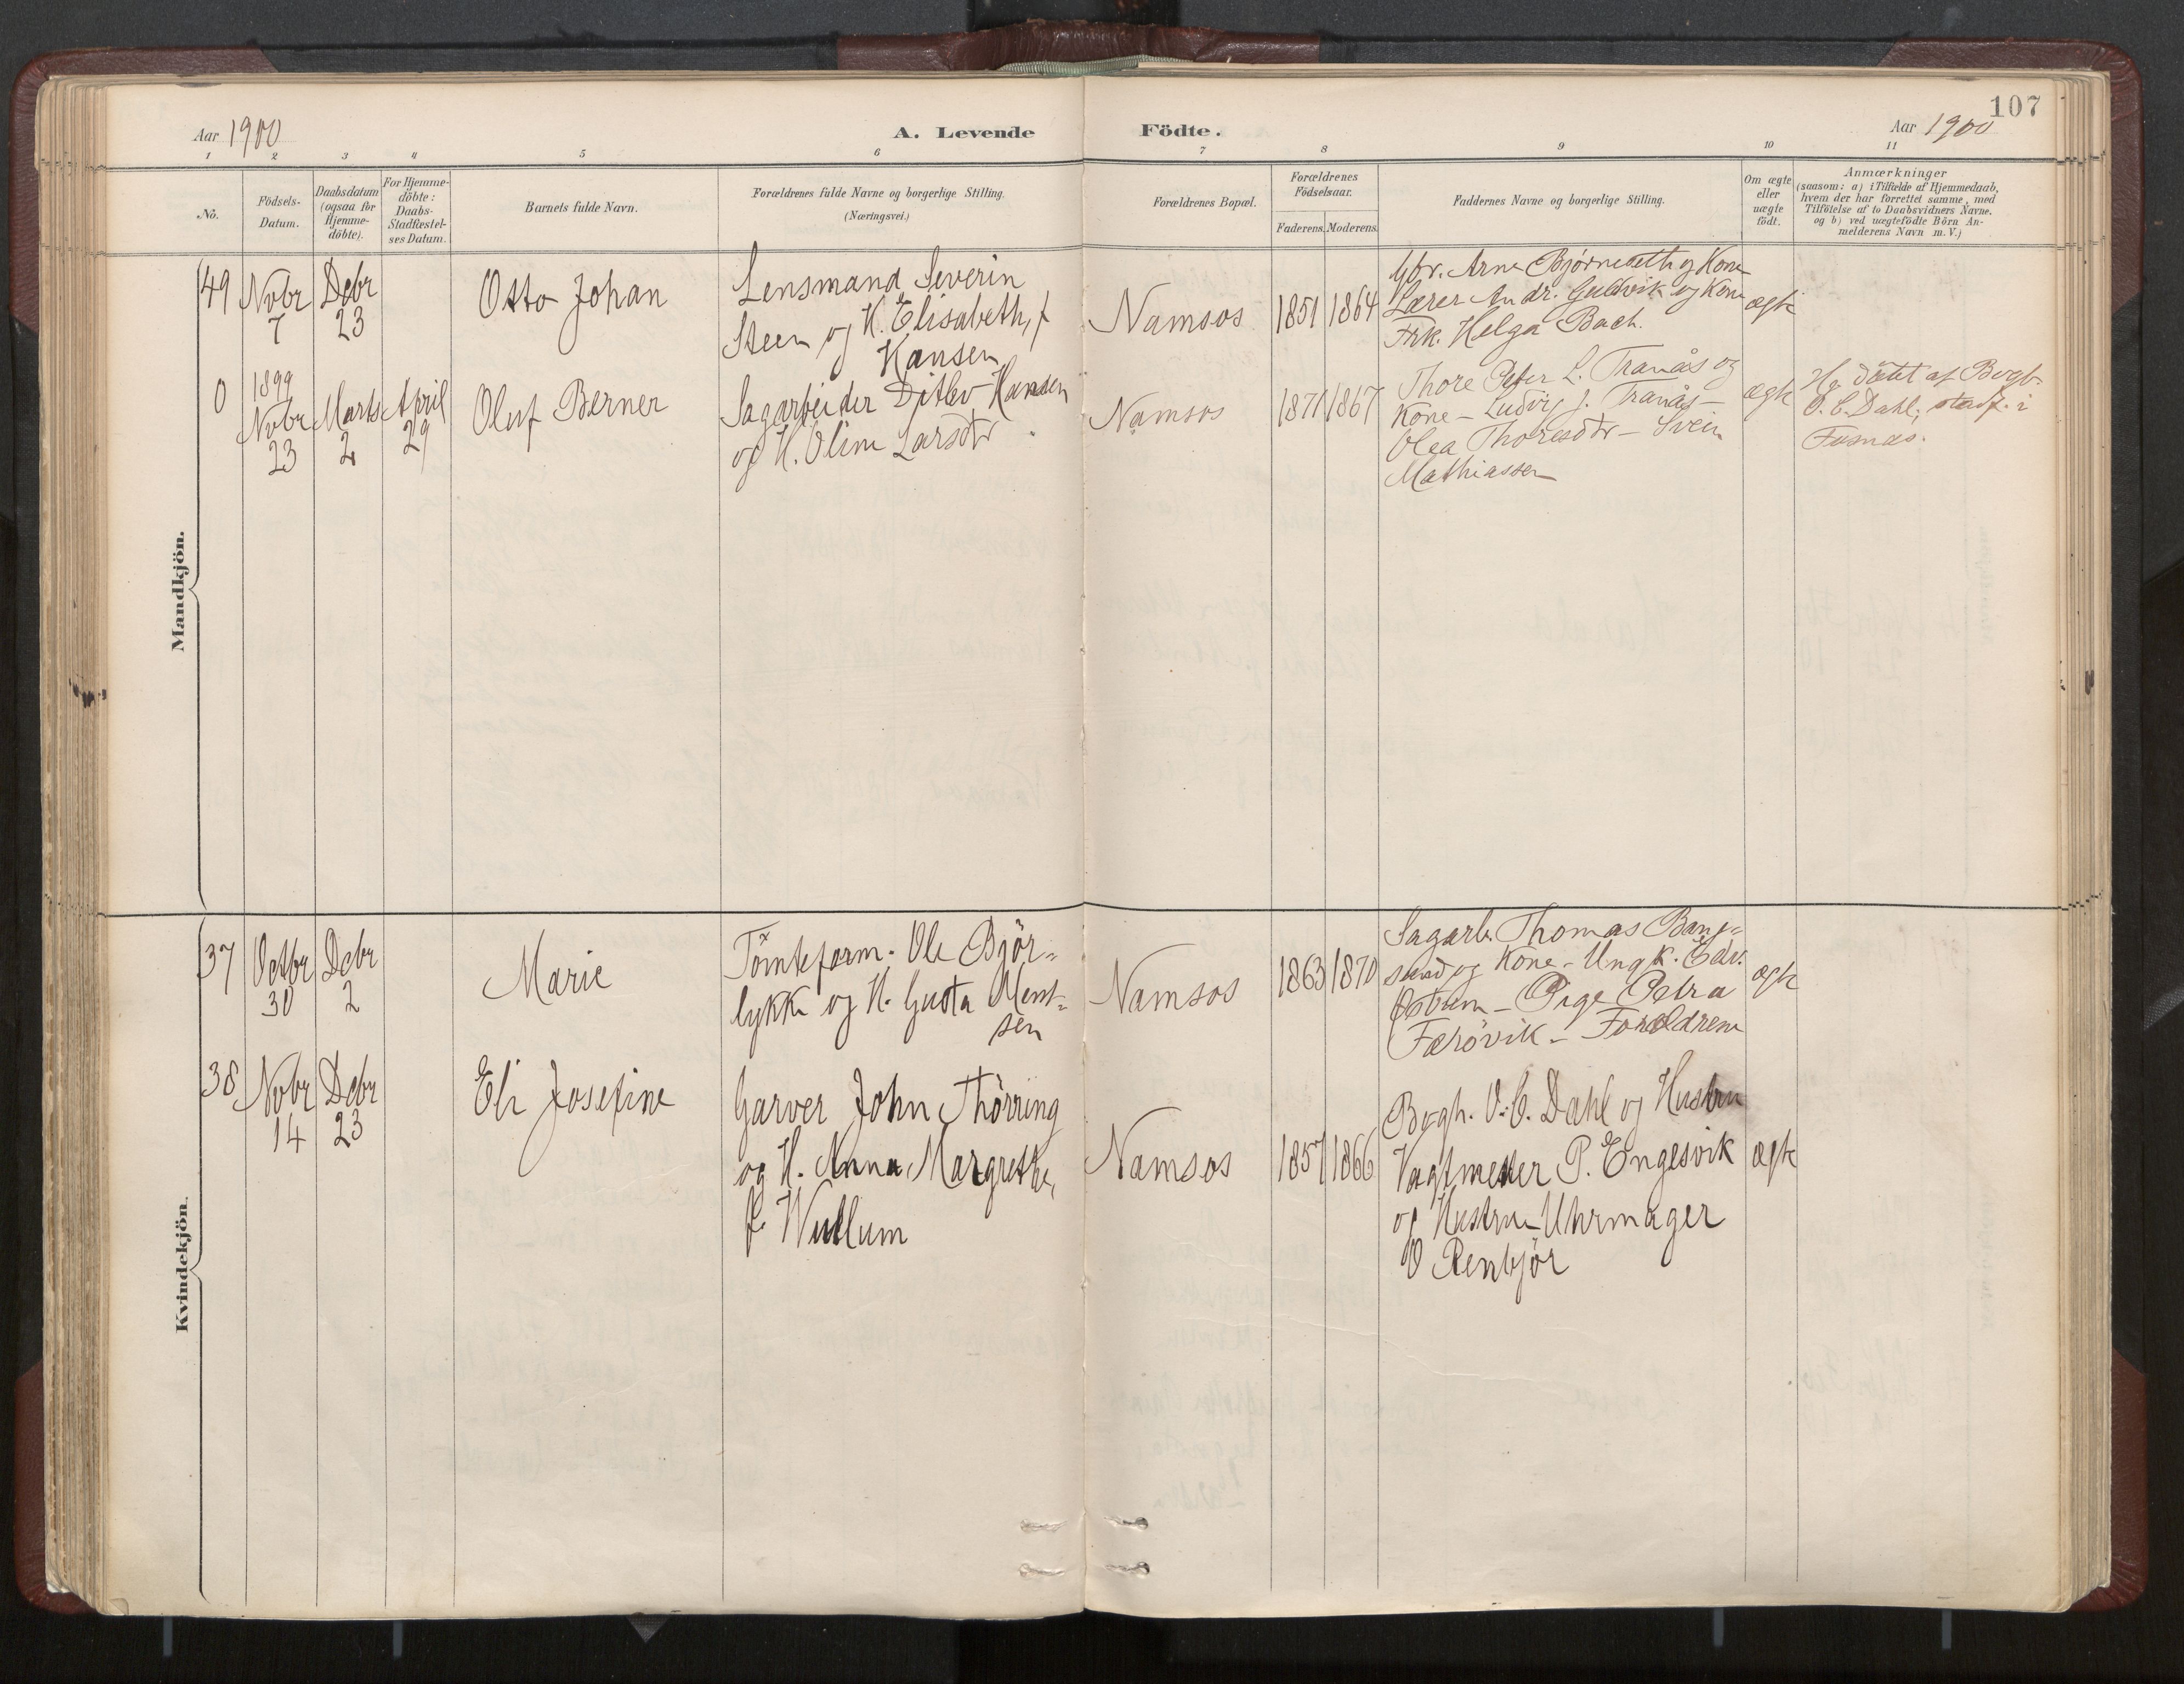 107
Aar 1900
A. Levende Födte.
Aar 1900
1 2 3 4 5 6 7 8 9 10 11
No.
Födsels-
Datum.
Daabsdatum
(ogsaa for
Hjemme-
döbte).
For Hjemme-
döbte:
Daabs-
Stadfæstel-
ses Datum.
Barnets fulde Navn.
Forældrenes fulde Navne og borgerlige Stilling.
(Næringsvei.)
Forældrenes Bopæl.
Forældrenes
Födselsaar.
Faderens. Moderens.
Faddernes Navne og borgerlige Stilling.
Om ægte
eller
uægte
født.
Anmærkninger
(saasom: a) i Tilfælde af Hjemmedaab,
hvem der har forrettet samme, med
Tilföielse af to Daabsvidners Navne.
og b) ved uægtefödte Börn An-
melderens Navn m. V.)
Mandkjön.
49
Nvbr
7
Debr
23
Otto Johan
Lensmand Severin
Steen og H. Elisabeth, f
Hansen
Namsos
1851 1864
Gbr. Arne Bjørneseth og Kone
Lærer Andr. Gulvik og Kone
Frk. Helga Bach.
ægte
0
1899
Novbr
23
Marts
2
April
29
Oluf Berner
Sagarbeider Ditlev Hansen
og H. Oline Larsdtr
Namsos
1871 1867
Thore Peter L. Tranås og
Kone - Ludvig J. Tranås -
Olea Thoresdtr - Svein
Mathiassen
ægte
Hj. døbt af Bogh.
O. C. Dahl; stadf. i
Fosnæs.
Kvindekjön.
37
Octbr
30
Debr
2
Marie
Tömteform. Ole Björ-
lykke og H. Gusta Ment-
sen
Namsos
1863 1870
Sagarb. Thomas Bang-
sund og Kone - Ungk. Edv.
- Pige Petra
Færövik - Forældrene
ægte
38
Novbr
14
Debr
23
Eli Josefine
Garver John Thörring
og H. Anna Margrethe,
f. Wullum
Namsos
1857 1866
Bogh. O. C. Dahl og Hustru
Vagtmester P. Engesvik
og Hustru - Uhrmager
O Renbjör
ægte